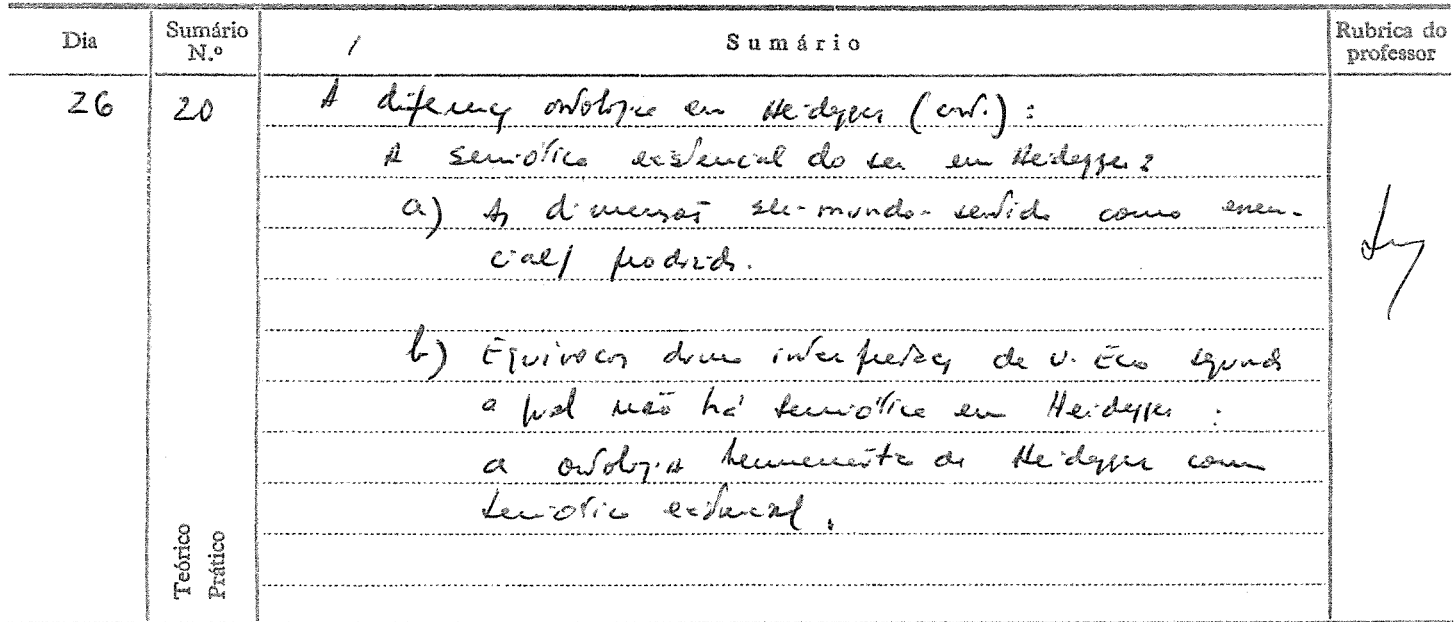 Dia Sumário N.º Sumário Rubrica do professor
26 20 A diferença ontológica em Heidegger (cont.) :
A semiótica existencial do ser em Heidegger :
a) As dimensões ser-mundo-sentido como essen-
cial/
b) Equívocos duma interpretação de U. Eco segundo
a qual não há semiótica em Heidegger :
a ontologia hermenêutica de Heidegger como
semiótica existencial.
Teórico
Prático